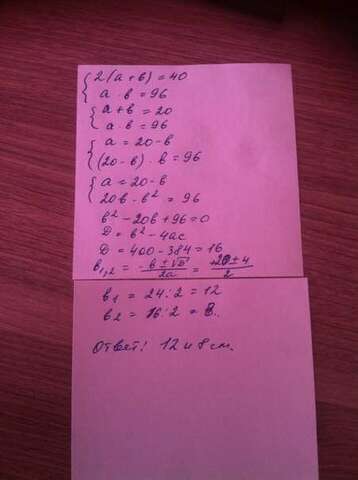 { 2(a+в)=40
a·в=96
{ a+в=20
a·в=96
{ a=20-в
(20-в)·в=96
{ a=20-в
20в-в²=96
в²-20в+96=0
D=в²-4ac
D=400-384=16
в₁,₂=(-в±√D)/2a=(+20±4)/2
в₁=24:2=12
в₂=16:2=8.
Ответ: 12 и 8 см.